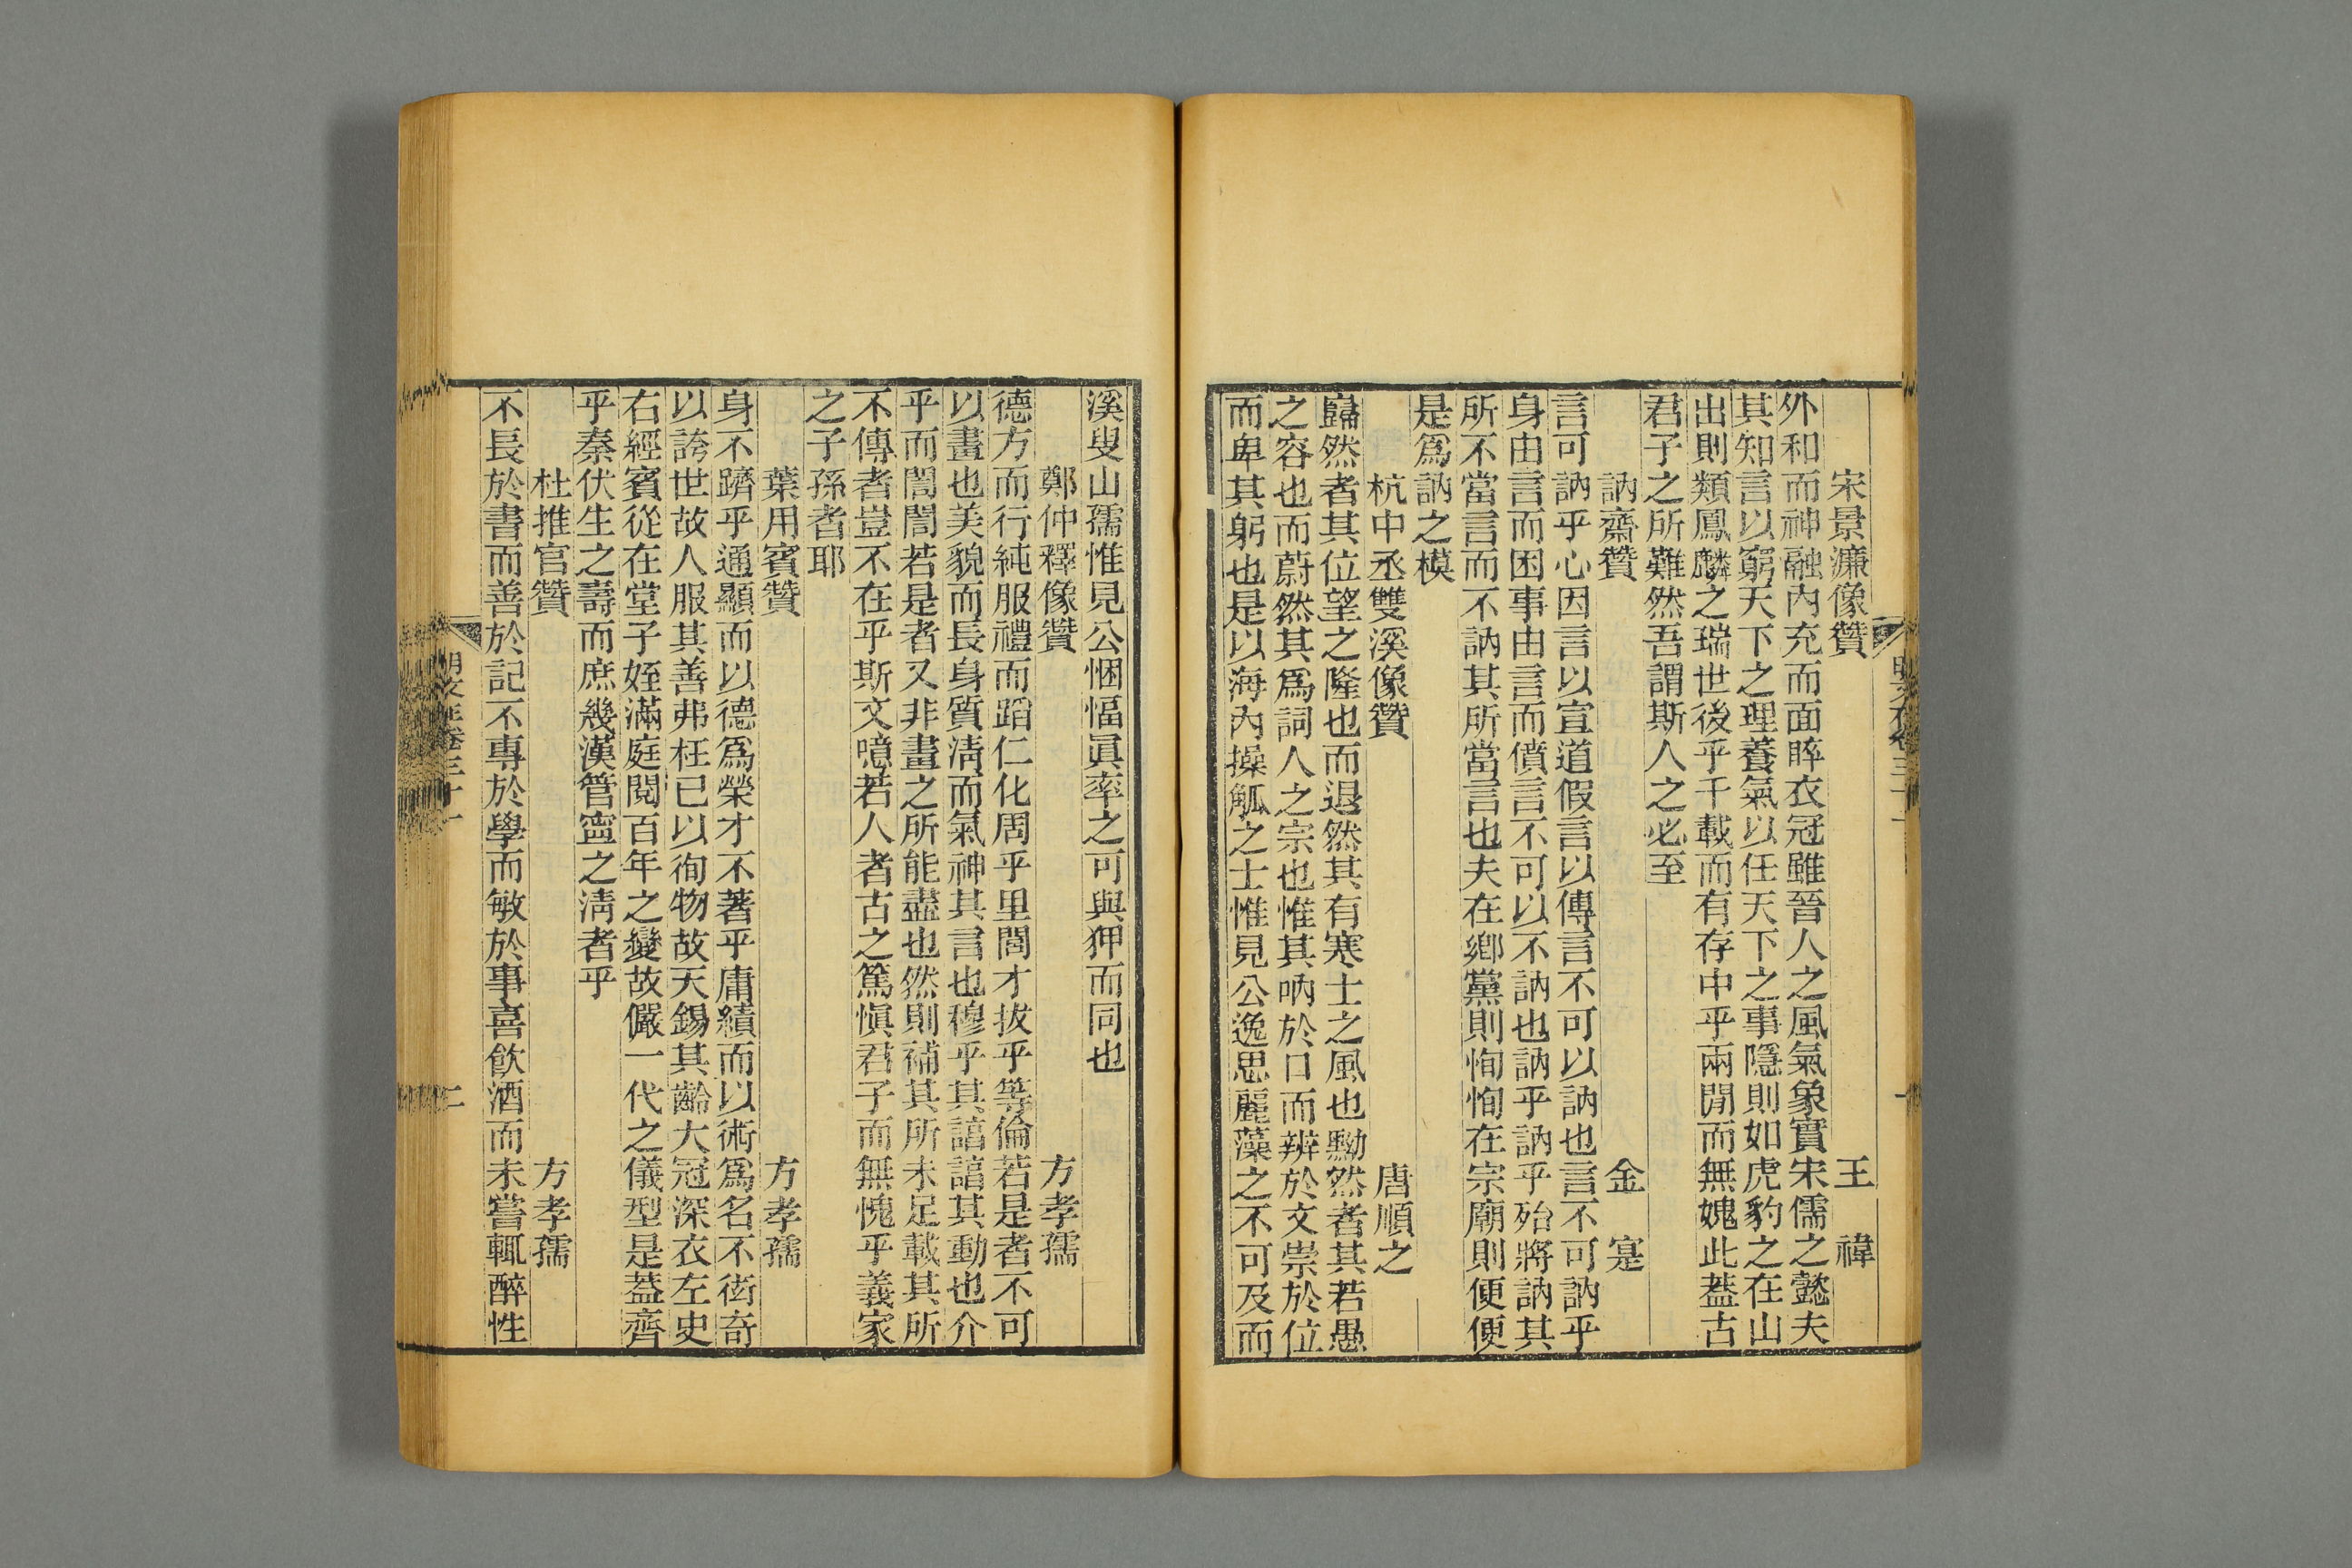 宋景濂像贊　王褘
外和而神融內充而面睟衣冠雖晉人之風氣象實宋儒之懿夫
其知言以窮天下之理養氣以任天下之事隱則如虎豹之在山
出則類鳳麟之瑞世後乎千載而有存中乎兩閒而無媿此葢古
君子之所難然吾謂斯人之必至
訥齋贊　金寔
言可訥乎心因言以宣道假言以傳言不可以訥也言不可訥乎
身由言而困事由言而僨言不可以不訥也訥乎訥乎殆將訥其
所不當言而不訥其所當言也夫在鄉黨則恂恂在宗廟則便便
是爲訥之模
杭中丞雙溪像贊　唐順之
巋然者其位望之隆也而退然其有寒士之風也黝然者其若愚
之容也而蔚然其爲詞人之宗也惟其吶於口而辨於文崇於位
而卑其躬也是以海內操觚之士惟見公逸思麗藻之不可及而
溪叟山孺惟見公悃愊眞率之可與狎而同也
鄭仲釋像贊　方孝孺
德方而行純服禮而蹈仁化周乎里閭才拔乎等倫若是者不可
以畫也美貌而長身質淸而氣神其言也穆乎其諳諳其動也介
乎而誾誾若是者又非畫之所能盡也然則補其所未足載其所
不傳者豈不在乎斯文噫若人者古之篤愼君子而無愧乎義家
之子孫者耶
葉用賓贊　方孝孺
身不躋乎通顯而以德爲榮才不著乎庸績而以術爲名不衒奇
以誇世故人服其善弗枉已以徇物故天錫其齡大冠深衣左史
右經賓從在堂子姪滿庭閱百年之變故儼一代之儀型是葢齊
乎秦伏生之壽而庶幾漢管寧之淸者乎
杜推官贊　方孝孺
不長於書而善於記不專於學而敏於事喜飮酒而未嘗輒醉性
明文在卷三十一
二